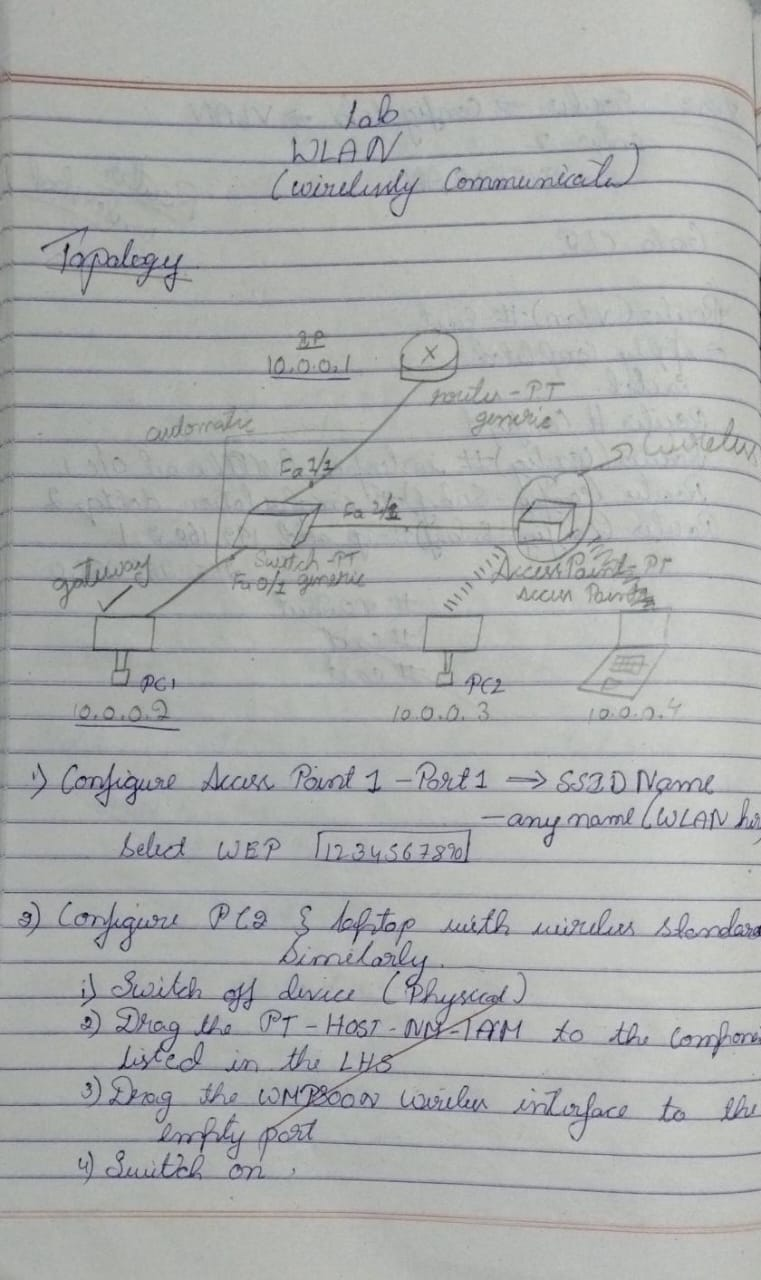 Lab
WLAN
(wirelessly Communicate)
Topology
IP
10.0.0.1
X
router-PT
generic
automatic
Fa 1/1
wireless
Fa 2/1
gateway
Switch-PT
Fa 0/1 generic
Access Point-PT
Access Point
PC1
PC2
10.0.0.2
10.0.0.3
10.0.0.4
1) Configure Access Point 1 - Port 1 → SSID Name
- any name (WLAN
Select WEP 1234567890
2) Configure PC2 & laptop with wireless standard
Similarly.
i) Switch off device (Physical)
2) Drag the PT-HOST-NM-1AM to the compone
listed in the LHS
3) Drag the WMP300N wireless interface to the
empty port
4) Switch on.